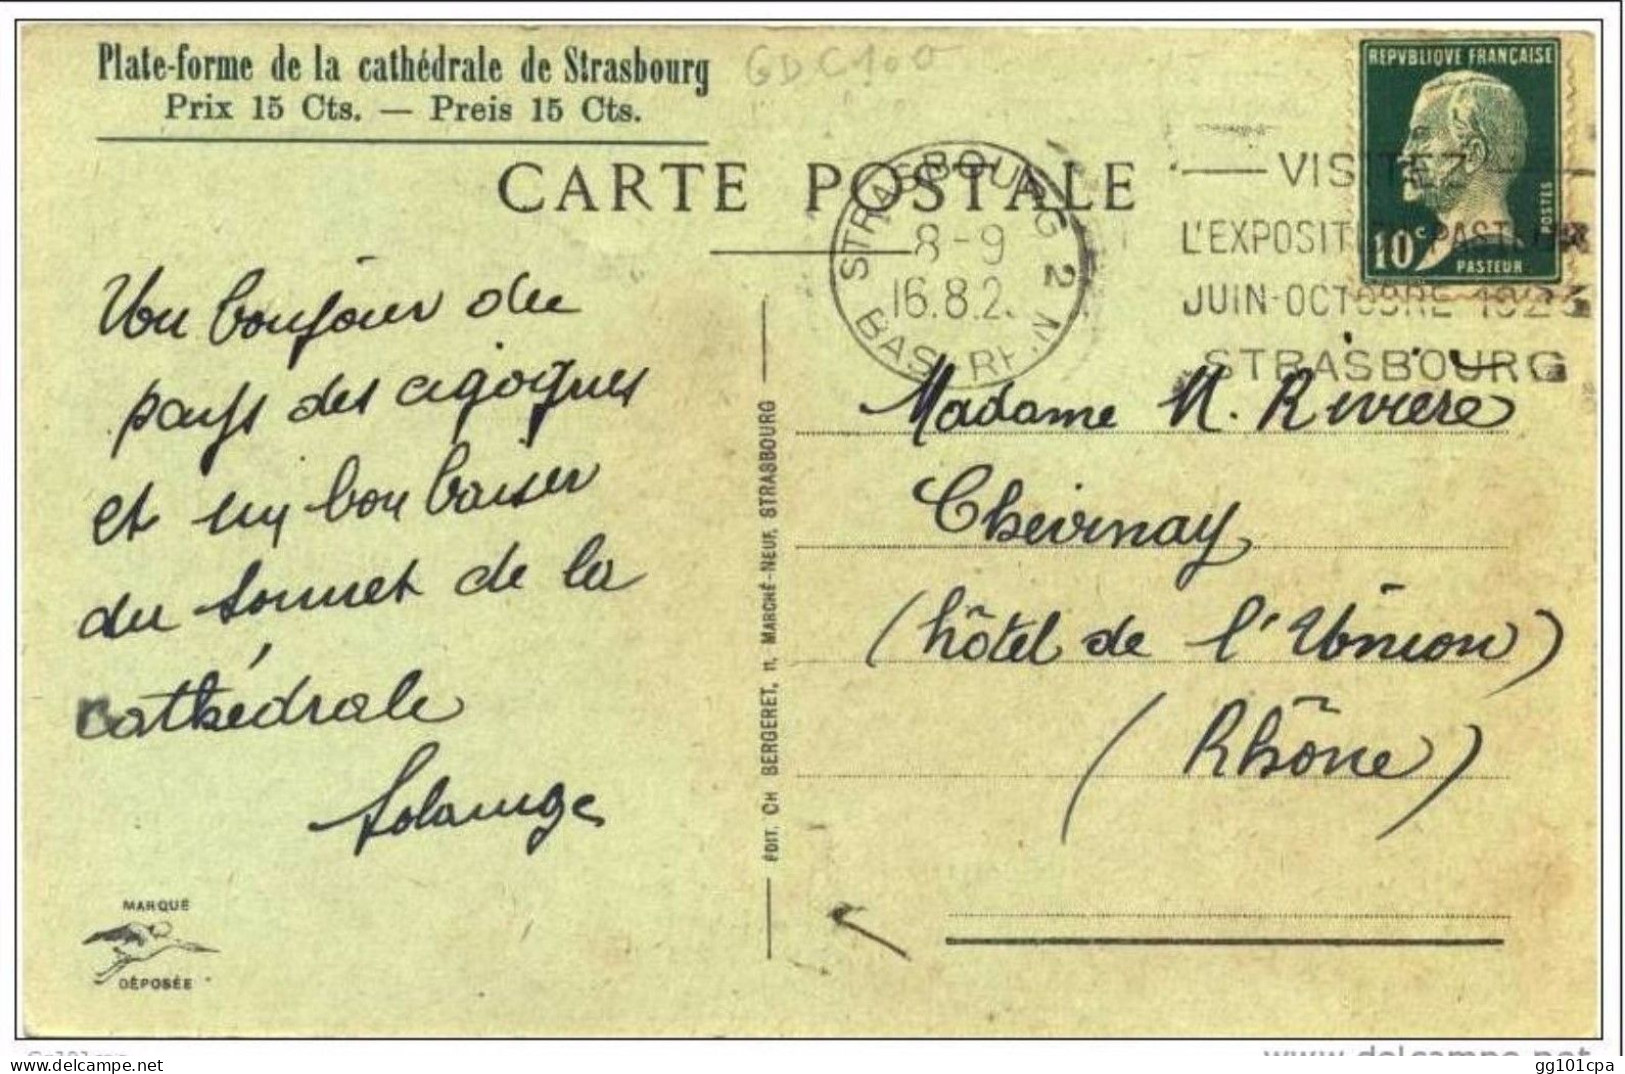 Plate-forme de la cathédrale de Strasbourg
Prix 15 Cts. — Preis 15 Cts.
GDC100
CARTE POSTALE
STRASBOURG 2
8-9
16.8.2
BAS RHIN
VISITEZ
L'EXPOSITION PASTEUR
JUIN-OCTOBRE 1923
STRASBOURG
REPVBLIQVE FRANÇAISE
POSTES
10c
PASTEUR
Un bonjour du
pays des cigognes
et un bon baiser
du sommet de la
cathédrale
Solange
Madame M. Rivière
Chevinay
(hôtel de l'Union)
(Rhône)
ÉDIT. CH BERGERET, 11, MARCHÉ-NEUF, STRASBOURG
MARQUE
DÉPOSÉE
www.delcampe.net
gg101cpa